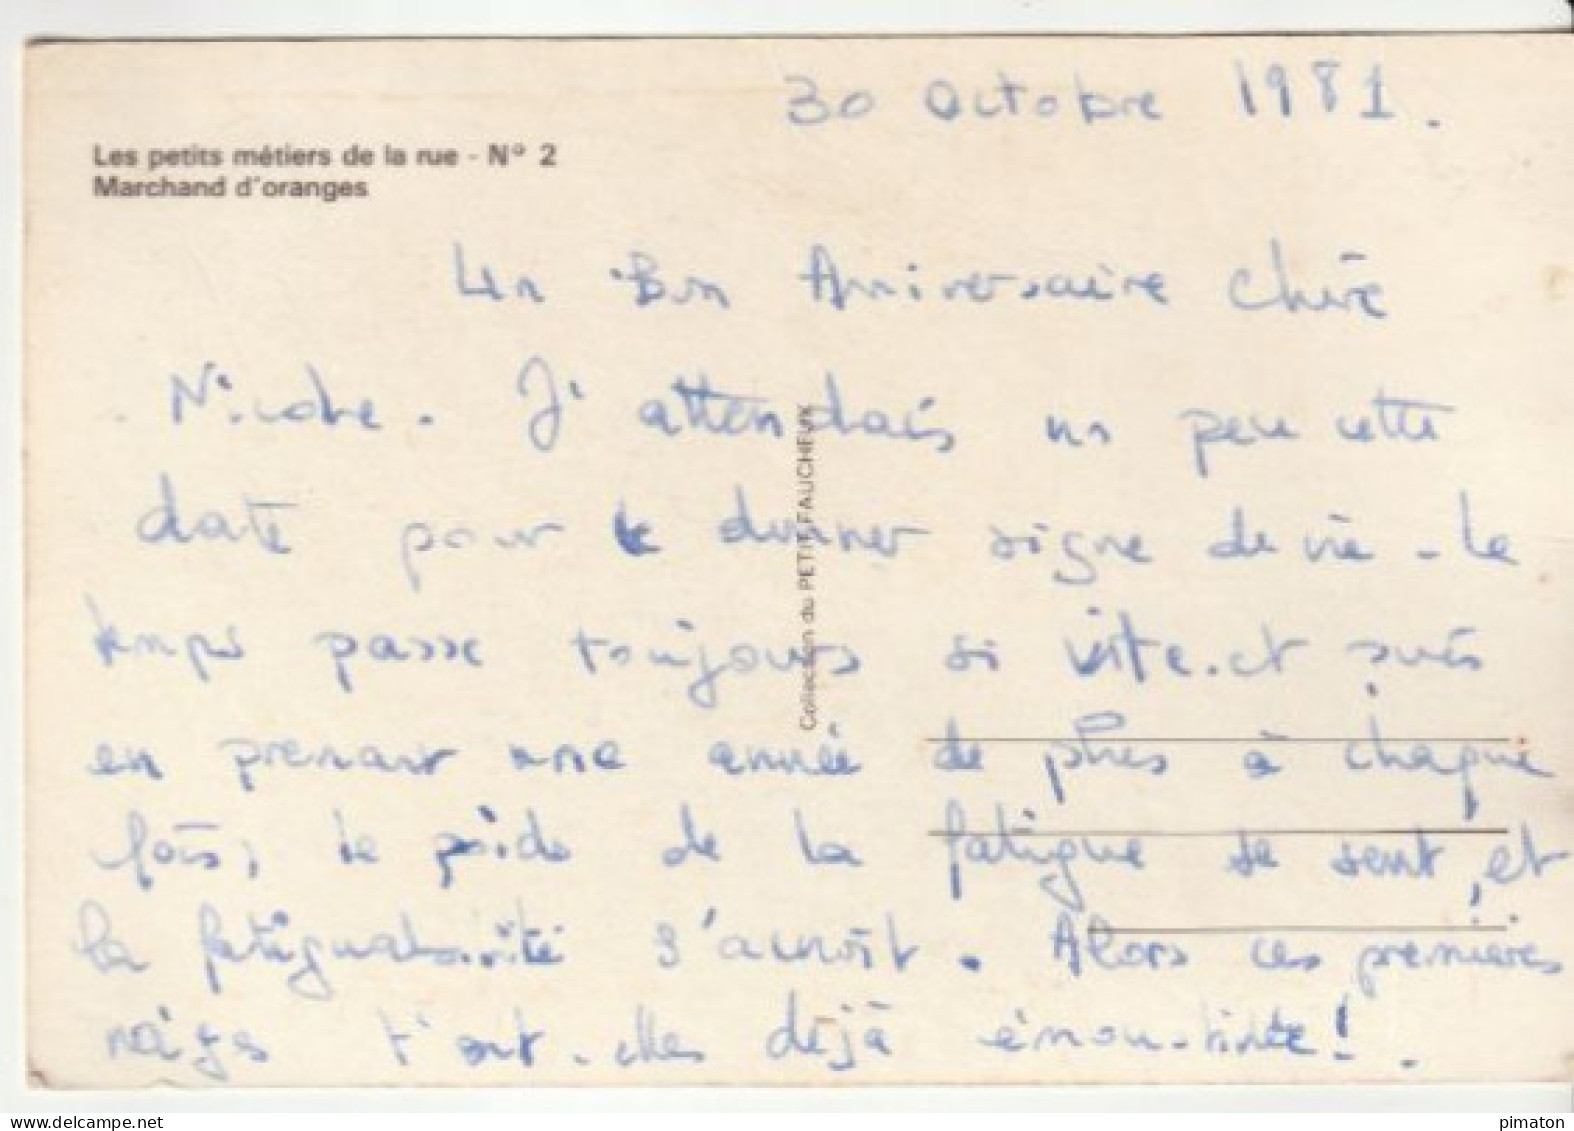 30 Octobre 1981.
Les petits métiers de la rue - N° 2
Marchand d'oranges
Un Bon Anniversaire chère
Nicole. J'attendais un peu cette
date pour te donner signe de vie - le
temps passe toujours si vite et puis
en prenant une année de plus à chaque
fois, le poids de la fatigue se sent, et
la fatiguabilité s'accroît. Alors ces premières
neiges t'ont-elles déjà émoustillée !.
Collection du PETIT FAUCHEUX
www.delcampe.net
pimaton